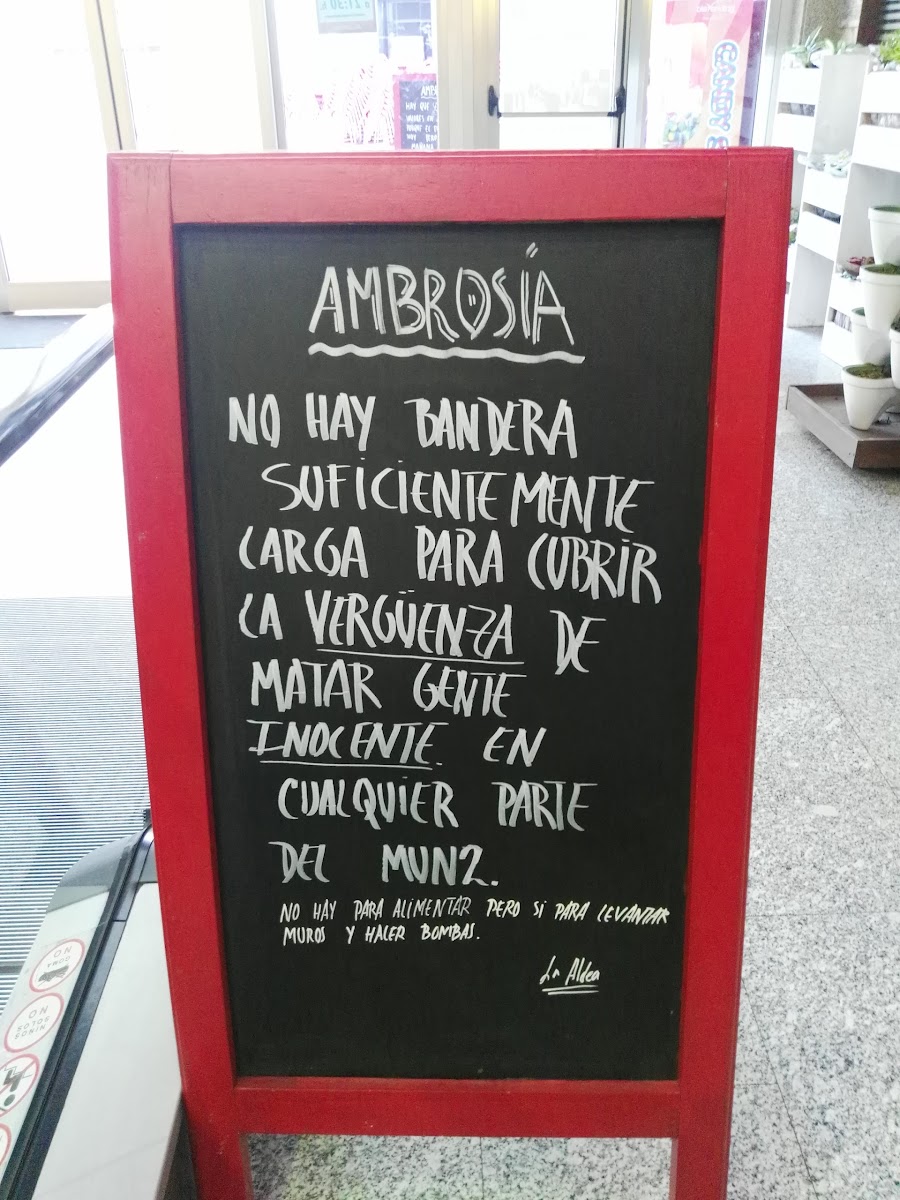 AMBROSÍA
NO HAY BANDERA
SUFICIENTEMENTE
LARGA PARA CUBRIR
LA VERGÜENZA DE
MATAR GENTE
INOCENTE. EN
CUALQUIER PARTE
DEL MUN2.
NO HAY PARA ALIMENTAR PERO SI PARA LEVANTAR
MUROS Y HACER BOMBAS.
La Aldea
21:30
HAY QUE
NO
GOMA
NO
NIÑOS
SOLOS